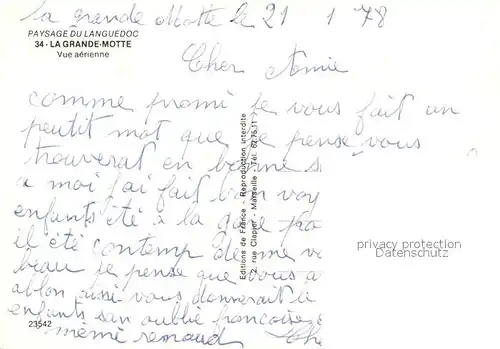 la grande Motte le 21 1 78
PAYSAGE DU LANGUEDOC
34 - LA GRANDE-MOTTE
Vue aérienne
Cher Amie
comme promi je vous fait un
peutit mot que je pense vous
trouverat en bonne s
a moi j'ai fait bon voy
enfants été à la gare
il été contemp de me v
beau je pense que vous a
aussi vous donnerait le
enfants san oublié françoise
mémé renaud Che
23542
Editions de France - Reproduction interdite
2, rue Clapier - Marseille - Tél. 62.75.11
privacy protection
Datenschutz